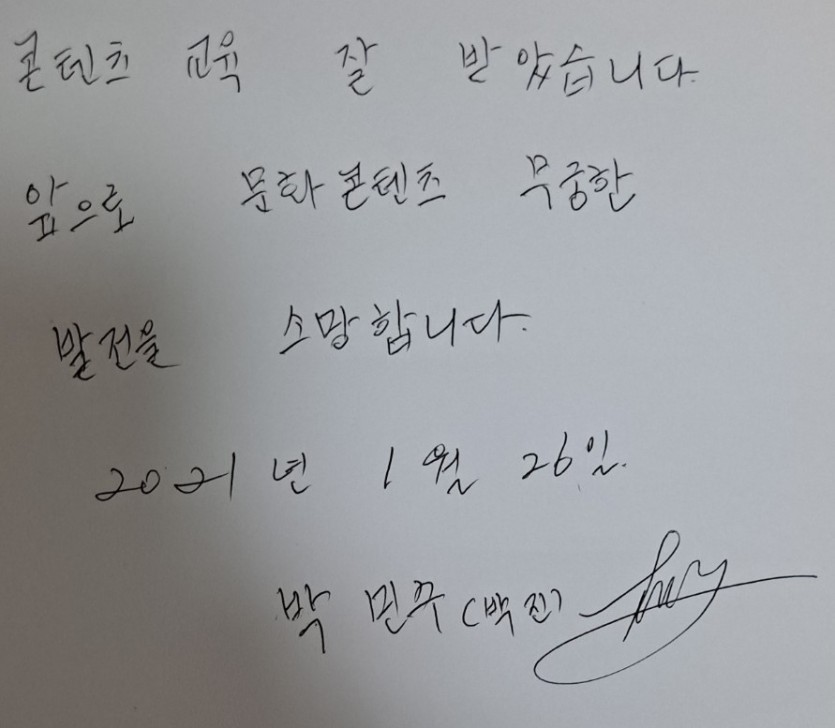 콘텐츠 교육 잘 받았습니다.
앞으로 문화콘텐츠 무궁한
발전을 소망합니다.
2021년 1월 26일.
박민주 (백진)